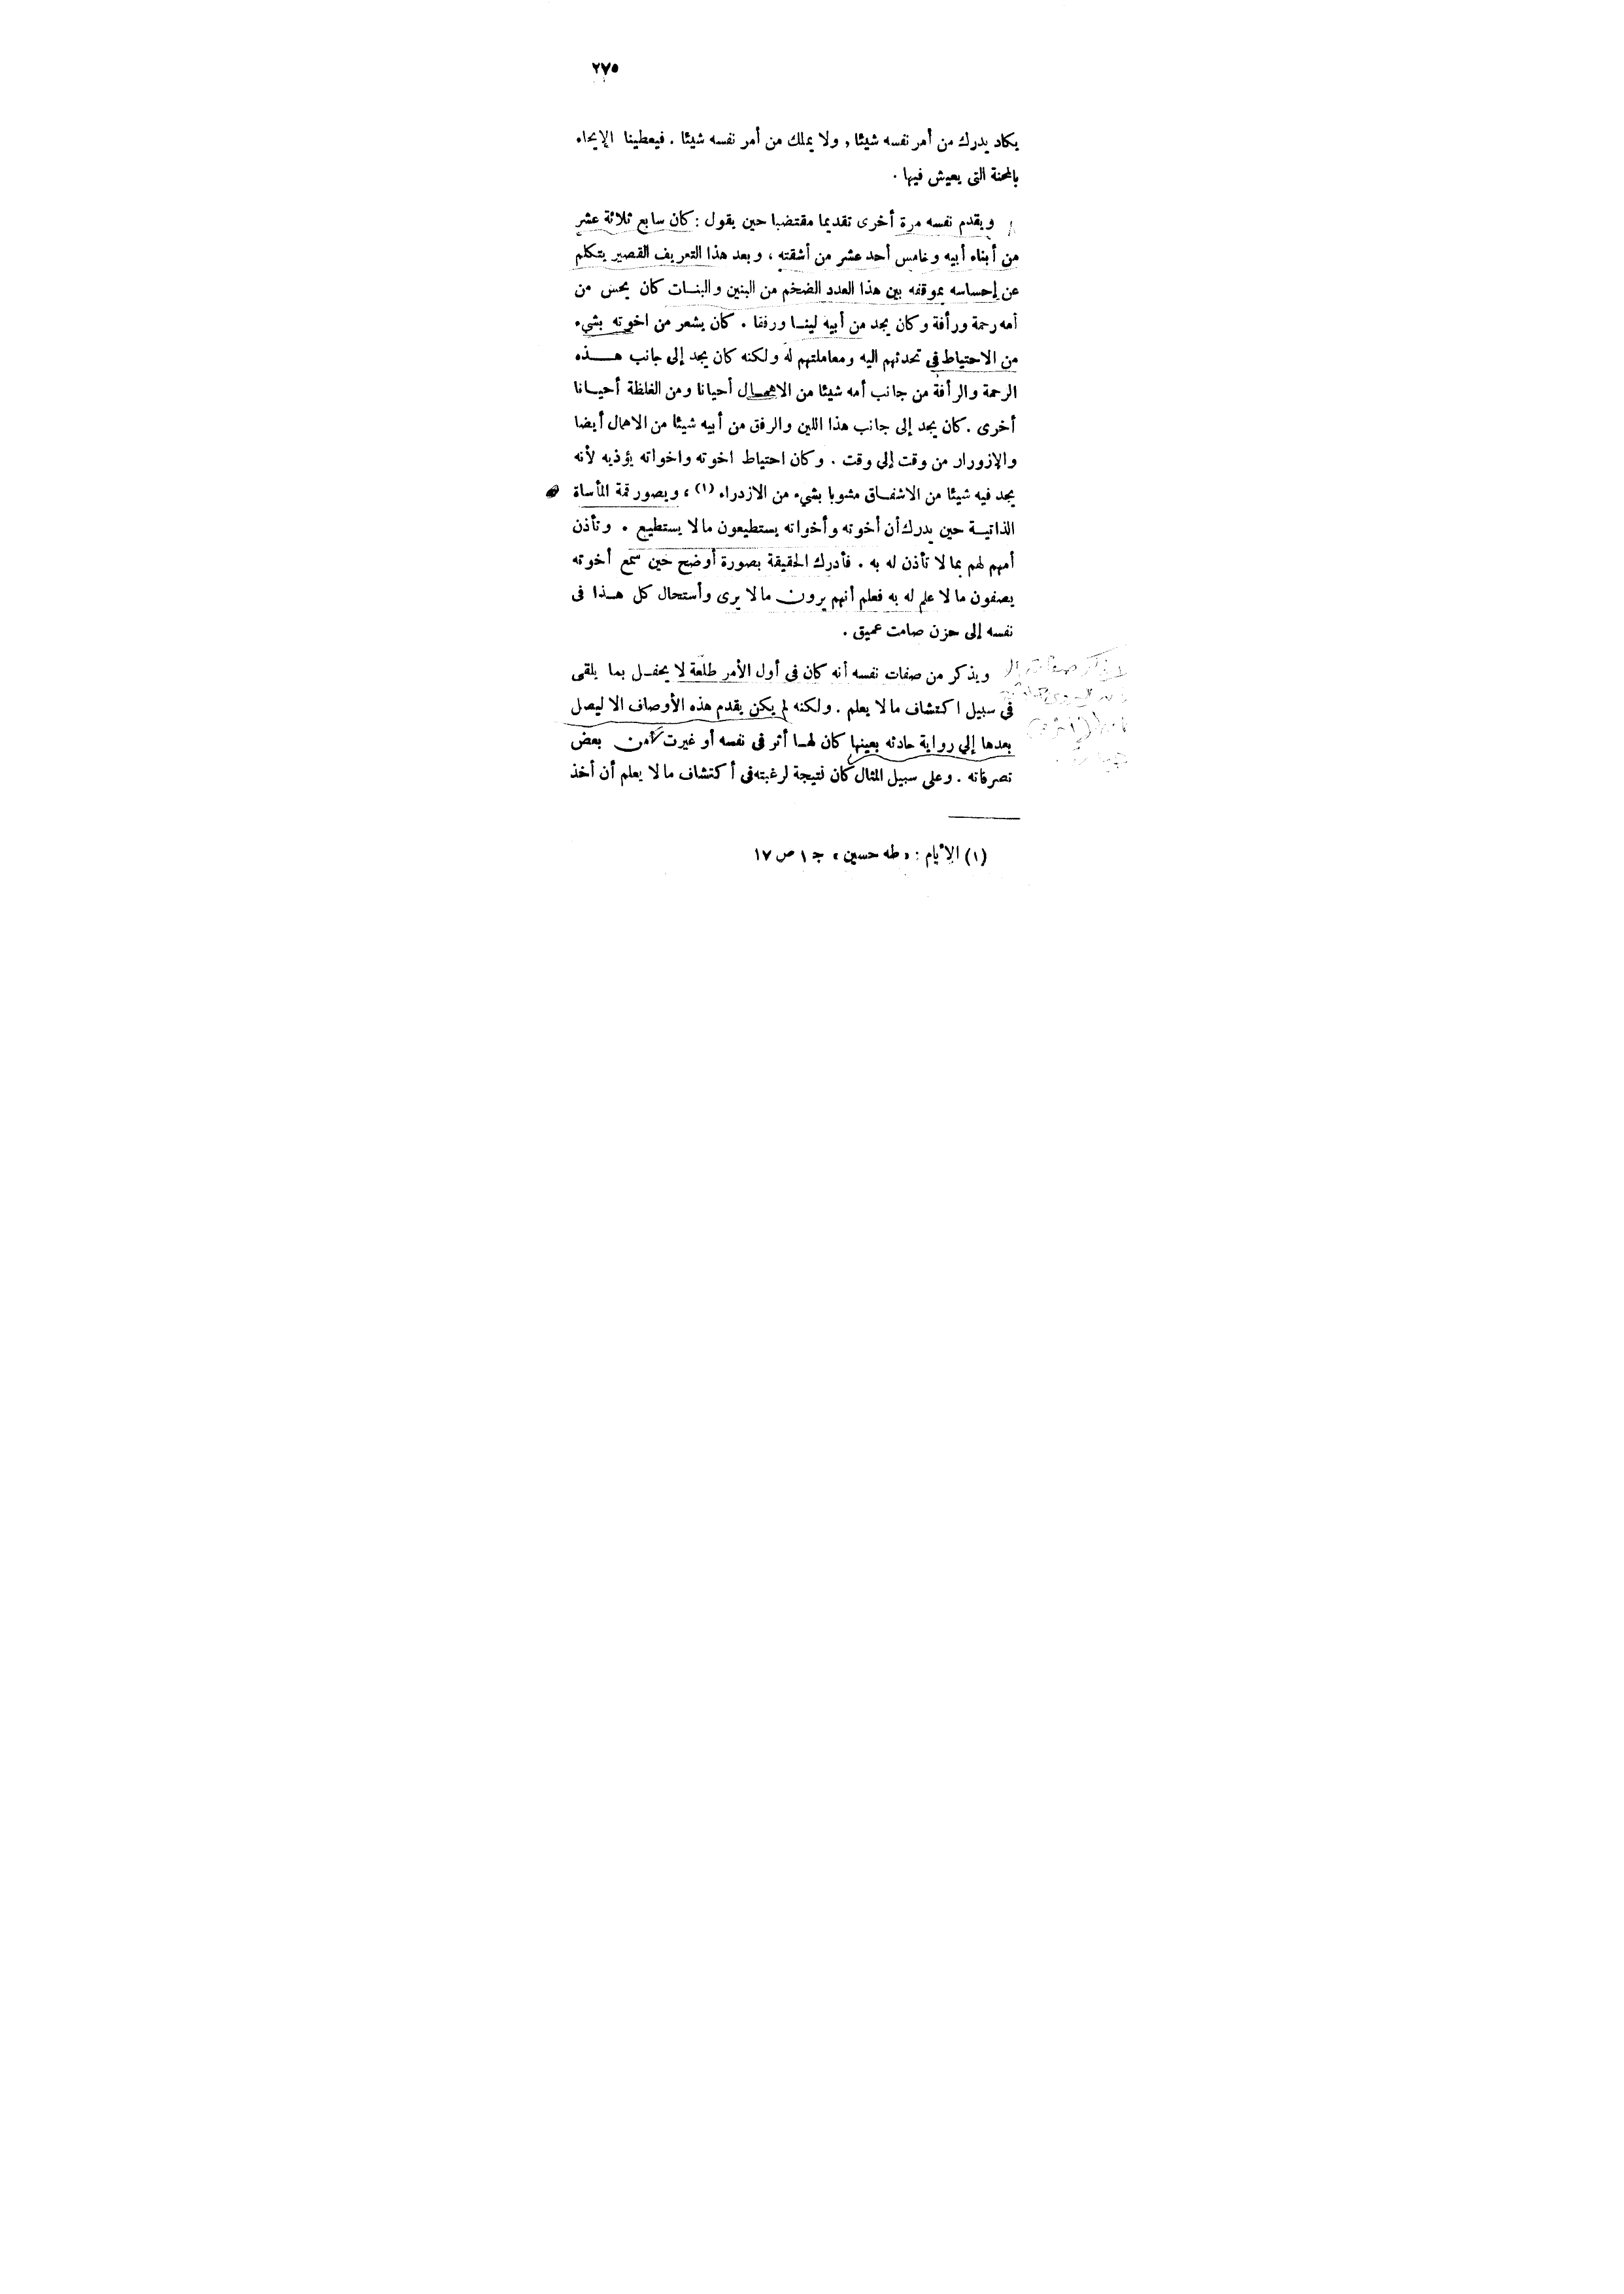 ٢٧٥
يكاد يدرك من أمر نفسه شيئا , ولا يملك من أمر نفسه شيئا . فيعطينا الإيحاء
بالمحنة التى يعيش فيها .
ويقدم نفسه مرة أخرى تقديما مقتضبا حين يقول : كان سابع ثلاثة عشر
من أبناء أبيه وخامس أحد عشر من أشقته ، وبعد هذا التعريف القصير يتكلم
عن إحساسه بموقفه بين هذا العدد الضخم من البنين والبنات كان يحس من
أمه رحمة ورأفة وكان يجد من أبيه لينا ورفقا . كان يشعر من اخوته بشيء
من الاحتياط في تحدثهم اليه ومعاملتهم له ولكنه كان يجد إلى جانب هذه
الرحمة والرأفة من جانب أمه شيئا من الاهمال أحيانا ومن الغلظة أحيانا
أخرى . كان يجد إلى جانب هذا اللين والرفق من أبيه شيئا من الاهمال أيضا
والإزورار من وقت إلى وقت . وكان احتياط اخوته واخواته يؤذيه لأنه
يجد فيه شيئا من الاشفاق مشوبا بشيء من الازدراء (١) ، ويصور قمة المأساة
الذاتية حين يدرك أن أخوته وأخواته يستطيعون مالا يستطيع . وتأذن
أمهم لهم بما لا تأذن له به . فأدرك الحقيقة بصورة أوضح حين سمع أخوته
يصفون ما لا علم له به فعلم أنهم يرون ما لا يرى وأستحال كل هذا فى
نفسه إلى حزن صامت عميق .
ويذكر من صفات نفسه أنه كان فى أول الأمر طلعة لا يحفل بما يلقى
فى سبيل اكتشاف مالا يعلم . ولكنه لم يكن يقدم هذه الأوصاف الا ليصل
بعدها إلى رواية حادثه بعينها كان لها أثر فى نفسه أو غيرت من بعض
تصرفاته . وعلى سبيل المثال كان نتيجة لرغبته فى أكتشاف ما لا يعلم أن أخذ
(١) الأيام : « طه حسين » ج ١ ص ١٧